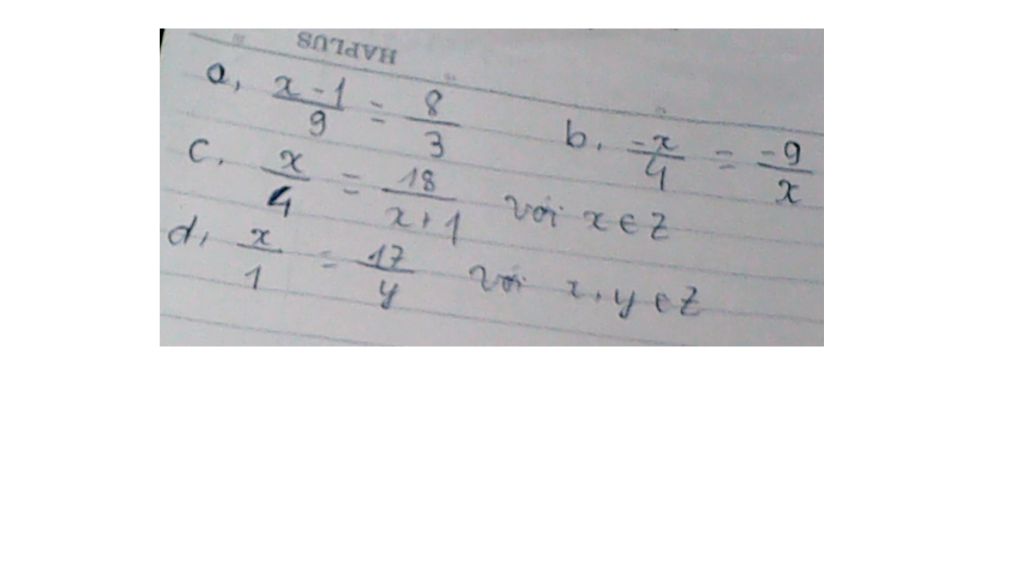 HAPLUS
a, x-1/9 = 8/3 b. -x/4 = -9/x
c. x/4 = 18/x+1 với x ∈ Z
d, x/1 = 17/y với x, y ∈ Z